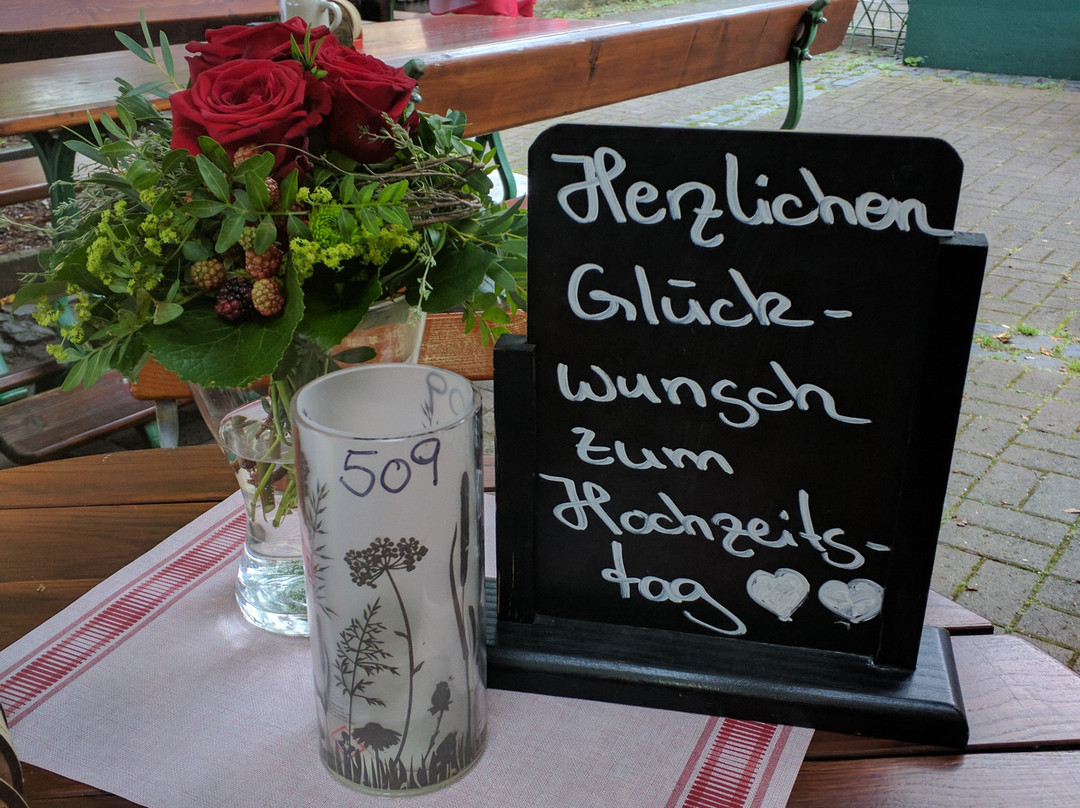 Herzlichen
Glück-
wunsch
zum
Hochzeits-
tag
509